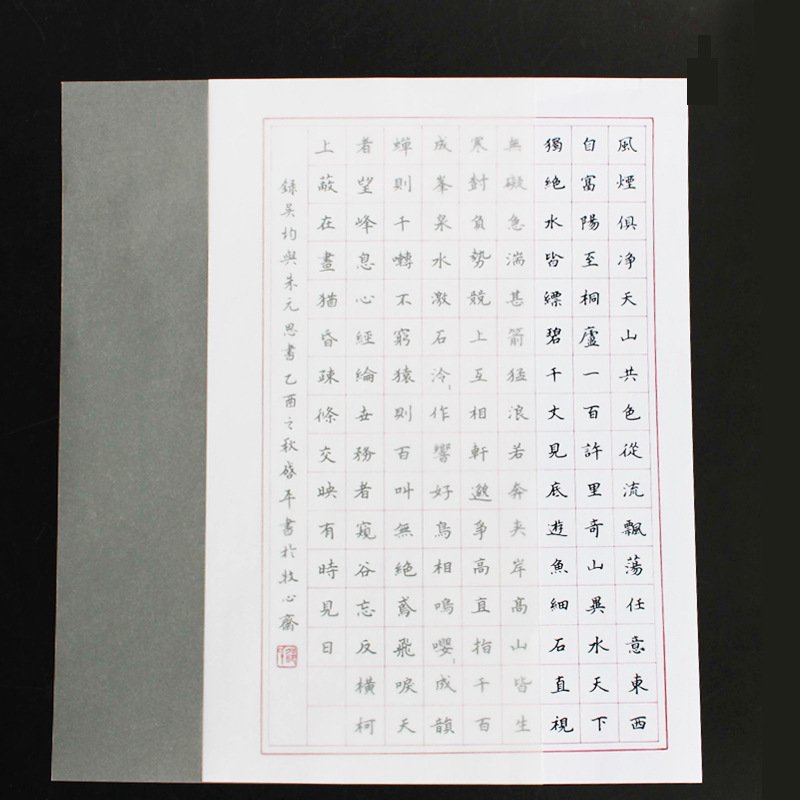 風煙俱净天山共色從流飄蕩任意東西
自富陽至桐廬一百許里奇山異水天下
獨絶水皆縹碧千丈見底遊魚細石直視
無礙急湍甚箭猛浪若奔夹岸高山皆生
寒對負勢競上互相軒邈爭高直指千百
成峯泉水激石泠〻作響好鳥相鳴嚶〻成韻
蟬則千囀不窮猿則百叫無絶鳶飛唳天
者望峰息心經綸世務者窺谷忘反橫柯
上蔽在晝猶昏疎條交映有時見日
錄吳均與朱元思書乙酉之秋啓平書於牧心齋